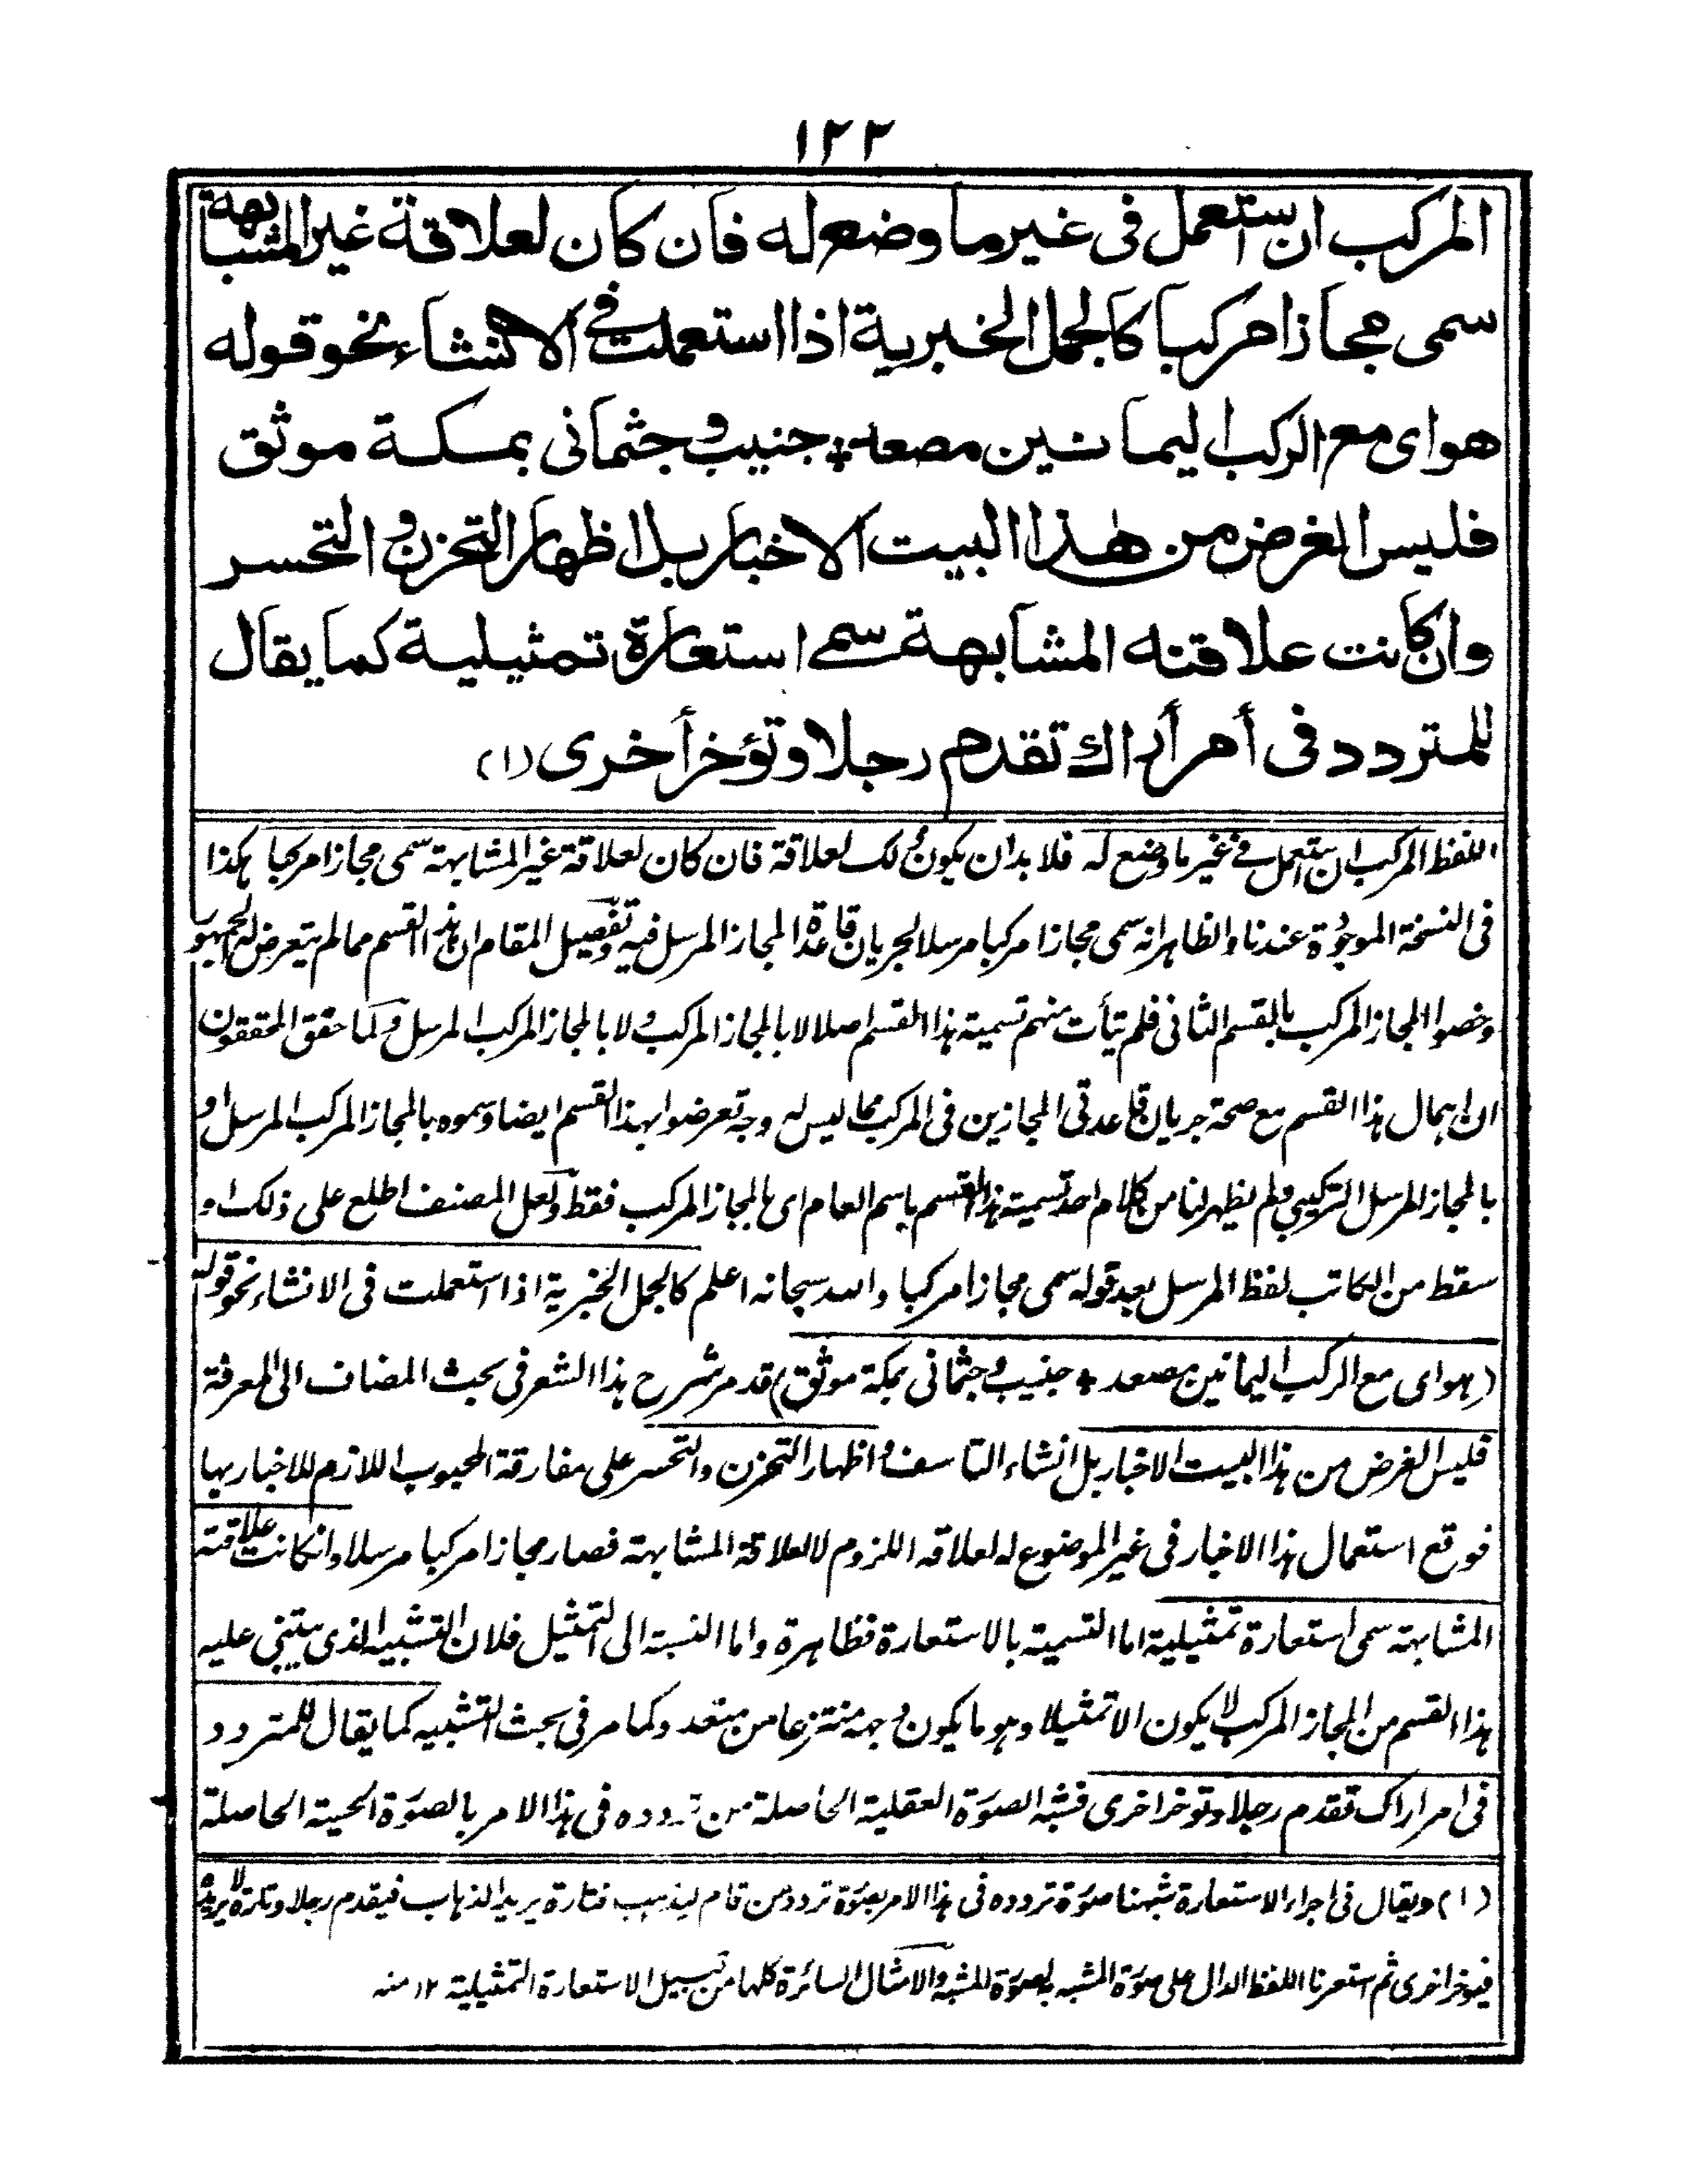 ١٢٢
المركب ان استعمل فى غير ما وضع له فان كان لعلاقة غير المشابهة
سمى مجازا مركبا كالجمل الخبرية اذا استعملت فى الانشاء نحو قوله
هواى مع الركب اليمانين مصعد * جنيب و جثمانى بمكة موثق
فليس الغرض من هذا البيت الاخبار بل اظهار التحزن و التحسر
وان كانت علاقته المشابهة سمى استعارة تمثيلية كما يقال
للمتردد فى أمر أراك تقدم رجلا وتؤخر أخرى (١)
اللفظ المركب ان استعمل فى غير ما وضع له فلا بد ان يكون ذلك لعلاقة فان كان لعلاقة غير المشابهة سمى مجازا مركبا هكذا
فى النسخة الموجودة عندنا والظاهر انه سمى مجازا مركبا مرسلا لجريان قاعدة المجاز المرسل فيه وتفصيل المقام ان هذا القسم مما لم يتعرض له الجمهور
وخصوا المجاز المركب بالقسم الثانى فلم يتأت منهم تسمية هذا القسم اصلا لا بالمجاز المركب ولا بالمجاز المركب المرسل ولما حقق المحققون
ان اهمال هذا القسم مع صحة جريان قاعدتى المجازين فى المركب مما ليس له وجه تعرضوا بهذا القسم ايضا وسموه بالمجاز المركب المرسل او
بالمجاز المرسل التركيبي ولم يظهر لنا من كلام احد تسمية هذا القسم باسم العام اى بالمجاز المركب فقط ولعل المصنف اطلع على ذلك او
سقط من الكاتب لفظ المرسل بعد قوله سمى مجازا مركبا والله سبحانه اعلم كالجمل الخبرية اذا استعملت فى الانشاء نحو قوله
(هواى مع الركب اليمانين مصعد * جنيب و جثمانى بمكة موثق) قد مر شرح هذا الشعر فى بحث المضاف الى المعرفة
فليس الغرض من هذا البيت الاخبار بل انشاء التاسف و اظهار التحزن والتحسر على مفارقة المحبوب اللازم للاخبار بها
فوقع استعمال هذا الاخبار فى غير الموضوع له لعلاقه اللزوم لا لعلاقة المشابهة فصار مجازا مركبا مرسلا وان كانت علاقته
المشابهة سمى استعارة تمثيلية اما التسمية بالاستعارة فظاهرة واما النسبة الى التمثيل فلان التشبيه الذى يبتنى عليه
هذا القسم من المجاز المركب لا يكون الا تمثيلا وهو ما يكون وجهه منتزعا من متعدد وكما مر فى بحث التشبيه كما يقال للمتردد
فى امر اراك تقدم رجلا وتوخر اخرى فشبه الصورة العقلية الحاصلة من تردده فى هذا الامر بالصورة الحسية الحاصلة
(١) ويقال فى اجراء الاستعارة شبهنا صورة تردده فى هذا الامر بصورة تردد من قام ليذهب فتارة يريد الذهاب فيقدم رجلا وتارة لا يريده
فيوخر اخرى ثم استعرنا اللفظ الدال على صورة المشبه به لصورة المشبه والامثال السائرة كلها من قبيل الاستعارة التمثيلية ١٢ منه